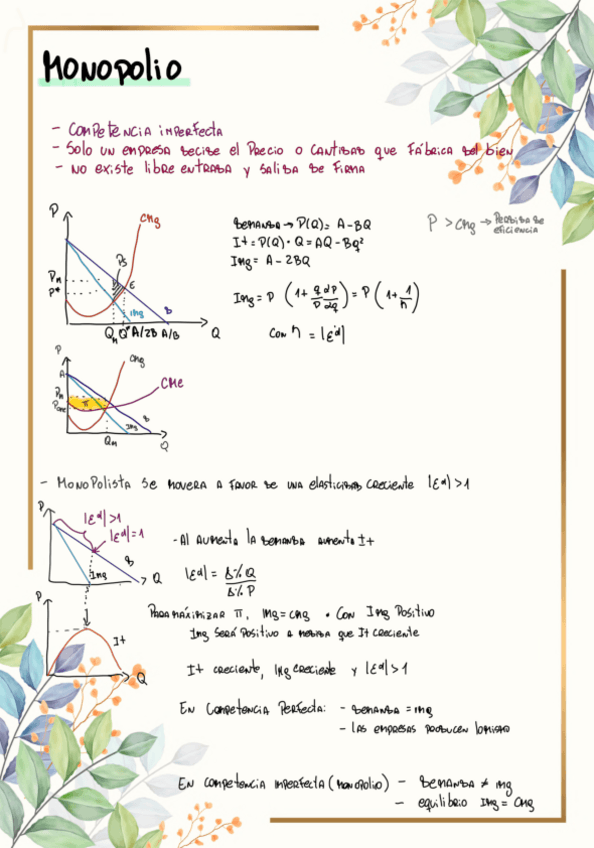 MONOPOLIO
- COMPETENCIA IMPERFECTA
- SOLO UN EMPRESA DECIDE EL PRECIO O CANTIDAD QUE FÁBRICA DEL BIEN
- NO EXISTE LIBRE ENTRADA Y SALIDA DE FIRMA
P
CMg
PS
Pm
P*
E
Img
D
Qm Q* A/2B A/B Q
DEMANDA → P(Q) = A-BQ
It = P(Q) · Q = AQ - BQ²
Img = A - 2BQ
Img = P (1 + q dP / P dq) = P (1 + 1/η)
CON η = |εd|
P > CMg → PERDIDA DE EFICIENCIA
P
CMg
A
CMe
Pm
π
Img
D
Qm
Q
- MONOPOLISTA SE MOVERA A FAVOR DE UNA ELASTICIDAD CRECIENTE |εd| > 1
P
|εd| > 1
|εd| = 1
D
Img
Q
- Al AUMENTA LA DEMANDA AUMENTA It
|εd| = Δ% Q / Δ% P
P
It
Q
PARA MÁXIMIZAR π, IMg = CMg • CON IMg POSITIVO
IMg SERÁ POSITIVO A MEDIDA QUE It CRECIENTE
It CRECIENTE, IMg CRECIENTE Y |εd| > 1
EN COMPETENCIA PERFECTA: - DEMANDA = IMg
- LAS EMPRESAS PRODUCEN LO MISMO
EN COMPETENCIA IMPERFECTA (MONOPOLIO) - DEMANDA ≠ IMg
- EQUILIBRIO IMg = CMg